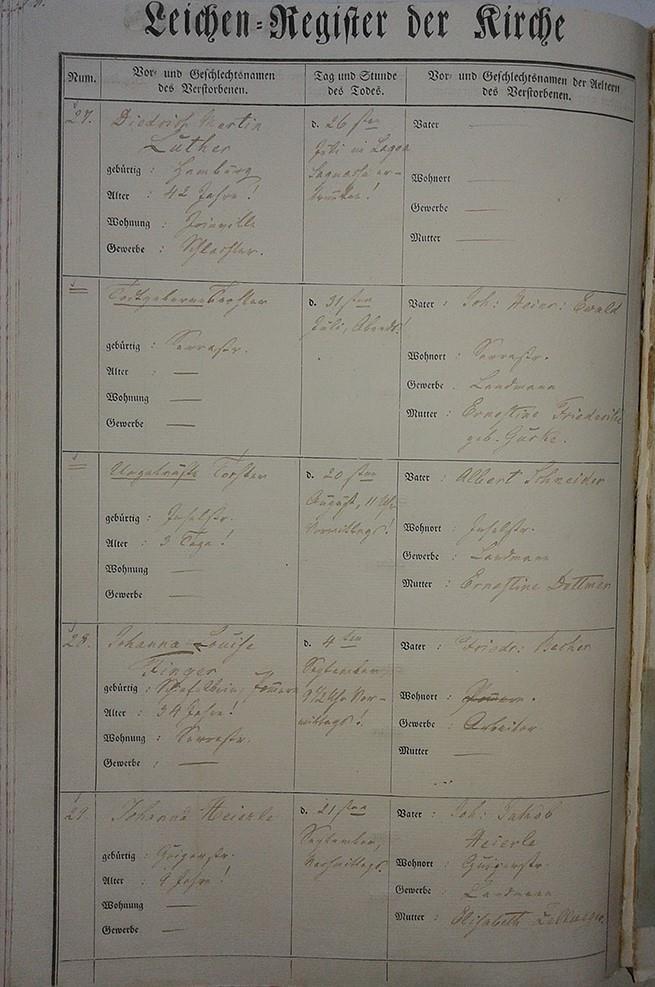 Leichen-Register der Kirche
Num.
Vor- und Geschlechtsnamen
des Verstorbenen.
Tag und Stunde
des Todes.
Vor- und Geschlechtsnamen der Aeltern
des Verstorbenen.
27.
Diedrich Martin
Luther
gebürtig : Hamburg
Alter : 42 Jahre!
Wohnung : Joinville
Gewerbe : Schlachter.
d. 26sten
Juli in Lagoa
Saguassu er-
trunken!
Vater
Wohnort
Gewerbe
Mutter
Todtgeborne Tochter
gebürtig : Serrastr.
Alter :
Wohnung
Gewerbe :
d. 31sten
Juli, Abends!
Vater : Joh: Heinr: Ewald
Wohnort : Serrastr.
Gewerbe . Landmann
Mutter : Ernestine Friederike
geb. Gürke.
Ungetaufte Tochter
gebürtig : Inselstr.
Alter : 3 Tage!
Wohnung
Gewerbe :
d. 20sten
August, 11 Uhr
Vormittags!
Vater : Albert Schneider
Wohnort : Inselstr.
Gewerbe : Landmann
Mutter : Ernestine Dettmer
28.
Johanna Louise
Finger
gebürtig : Pommern
Alter : 34 Jahre!
Wohnung : Serrastr.
Gewerbe :
d. 4ten
September,
9½ Uhr Vor-
mittags!
Vater : Friedr: Becker
Wohnort :
Gewerbe : Arbeiter
Mutter
29.
Johanna Heierle
gebürtig :
Alter : 9 Jahre!
Wohnung
Gewerbe
d. 21sten
September,
Nachmittags.
Vater : Joh: Jakob
Heierle
Wohnort :
Gewerbe : Landmann
Mutter : Elisabeth